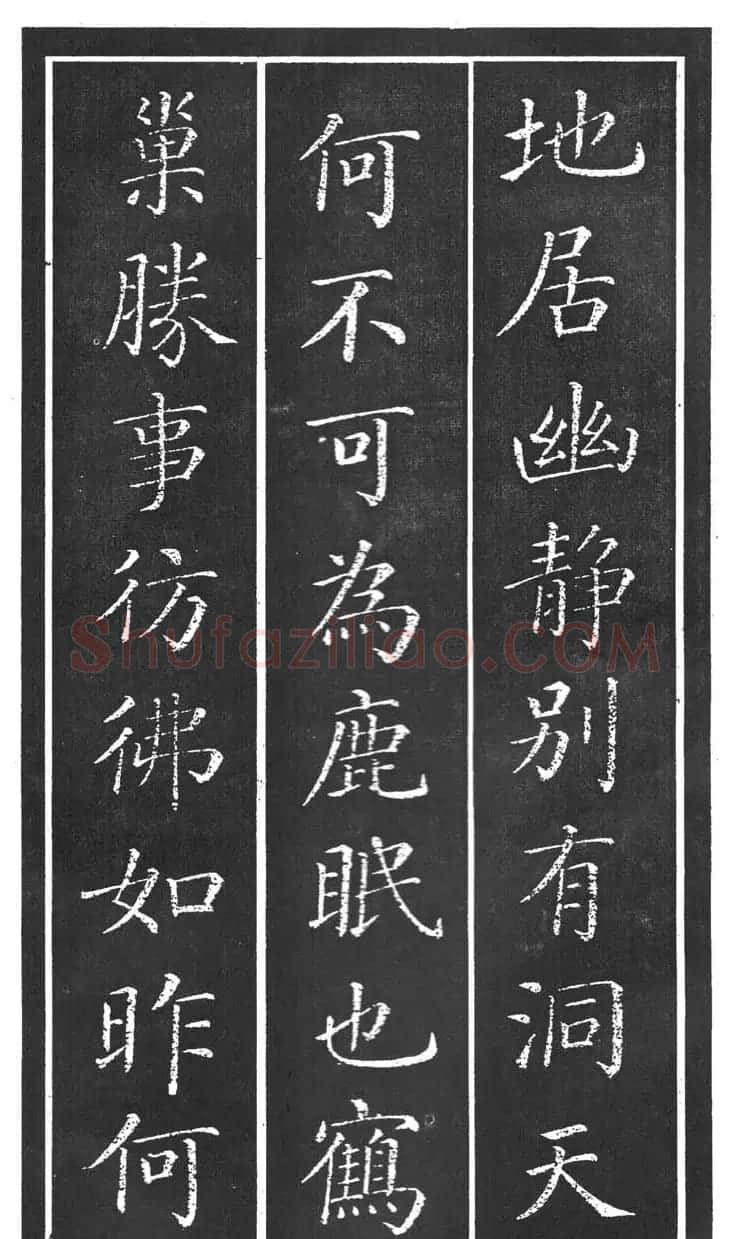 地居幽静别有洞天
何不可為鹿眠也鶴
巢勝事彷彿如昨何
Shufaziliao.COM